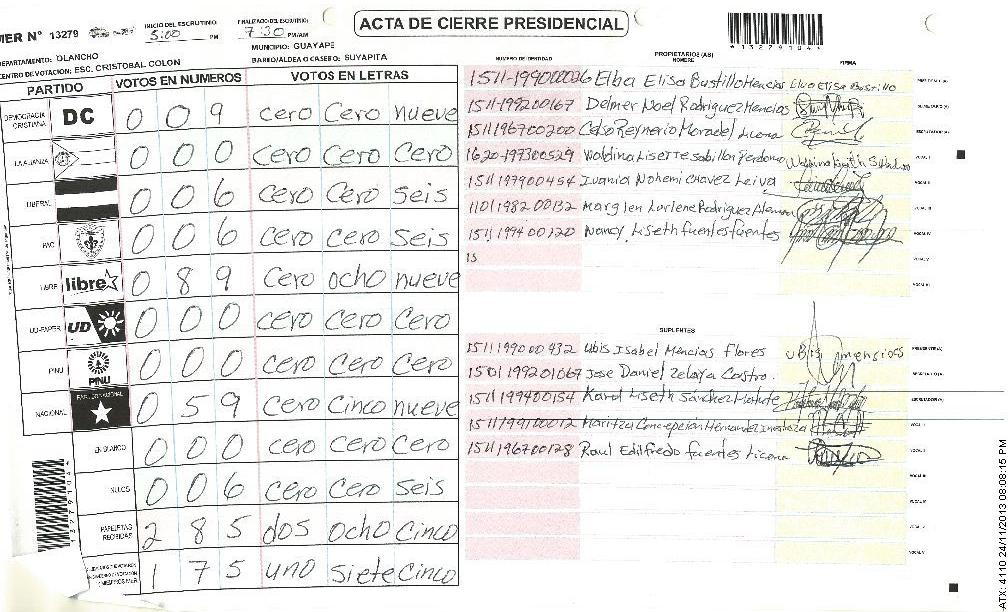 ACTA DE CIERRE PRESIDENCIAL
MER N° 13279
INICIO DEL ESCRUTINIO
5:00 PM
FINALIZACION DEL ESCRUTINIO:
7:30 PM/AM
DEPARTAMENTO: OLANCHO
MUNICIPIO: GUAYAPE
CENTRO DE VOTACION: ESC. CRISTOBAL COLON
BARRIO/ALDEA O CASERIO: SUYAPITA
132791044
PARTIDO VOTOS EN NUMEROS VOTOS EN LETRAS
DEMOCRACIA CRISTIANA DC 0 0 9 cero cero nueve
ALIANZA 0 0 0 cero cero cero
LIBERAL 0 0 6 cero cero seis
PAC 0 0 6 cero cero seis
LIBRE libre 0 8 9 cero ocho nueve
UD-FAPER UD 0 0 0 cero cero cero
PINU PINU 0 0 0 cero cero cero
NACIONAL 0 5 9 cero cinco nueve
EN BLANCO 0 0 0 cero cero cero
NULOS 0 0 6 cero cero seis
PAPELETAS RECIBIDAS 2 8 5 dos ocho cinco
1 7 5 uno siete cinco
132791044
NUMERO DE IDENTIDAD
PROPIETARIOS (AS)
NOMBRE
FIRMA
1511-199000026 Elba Elisa Bustillo Mencias Elba Elisa Bustillo
1511-199200167 Delmer Noel Rodriguez Mencias
1511196700200 Celso Reynerio Moradel Licona
1620-197300529 Waldina Lisette Sabillon Perdomo
1511197900454 Ivania Nohemi Chavez Leiva
1101198200132 Marglen Lorlene Rodriguez
1511199400120 Nancy Liseth fuentes fuentes
15
SUPLENTES
1511199000432 Ubis Isabel Mencias Flores
1501199201067 Jose Daniel Zelaya Castro.
1511199400154 Karol Liseth Sánchez Matute
1511199100012 Maritza Concepcion Hernandez
1511196700128 Raul Edilfredo fuentes Licona
ATX: 4110 24/11/2013 08:08:15 PM